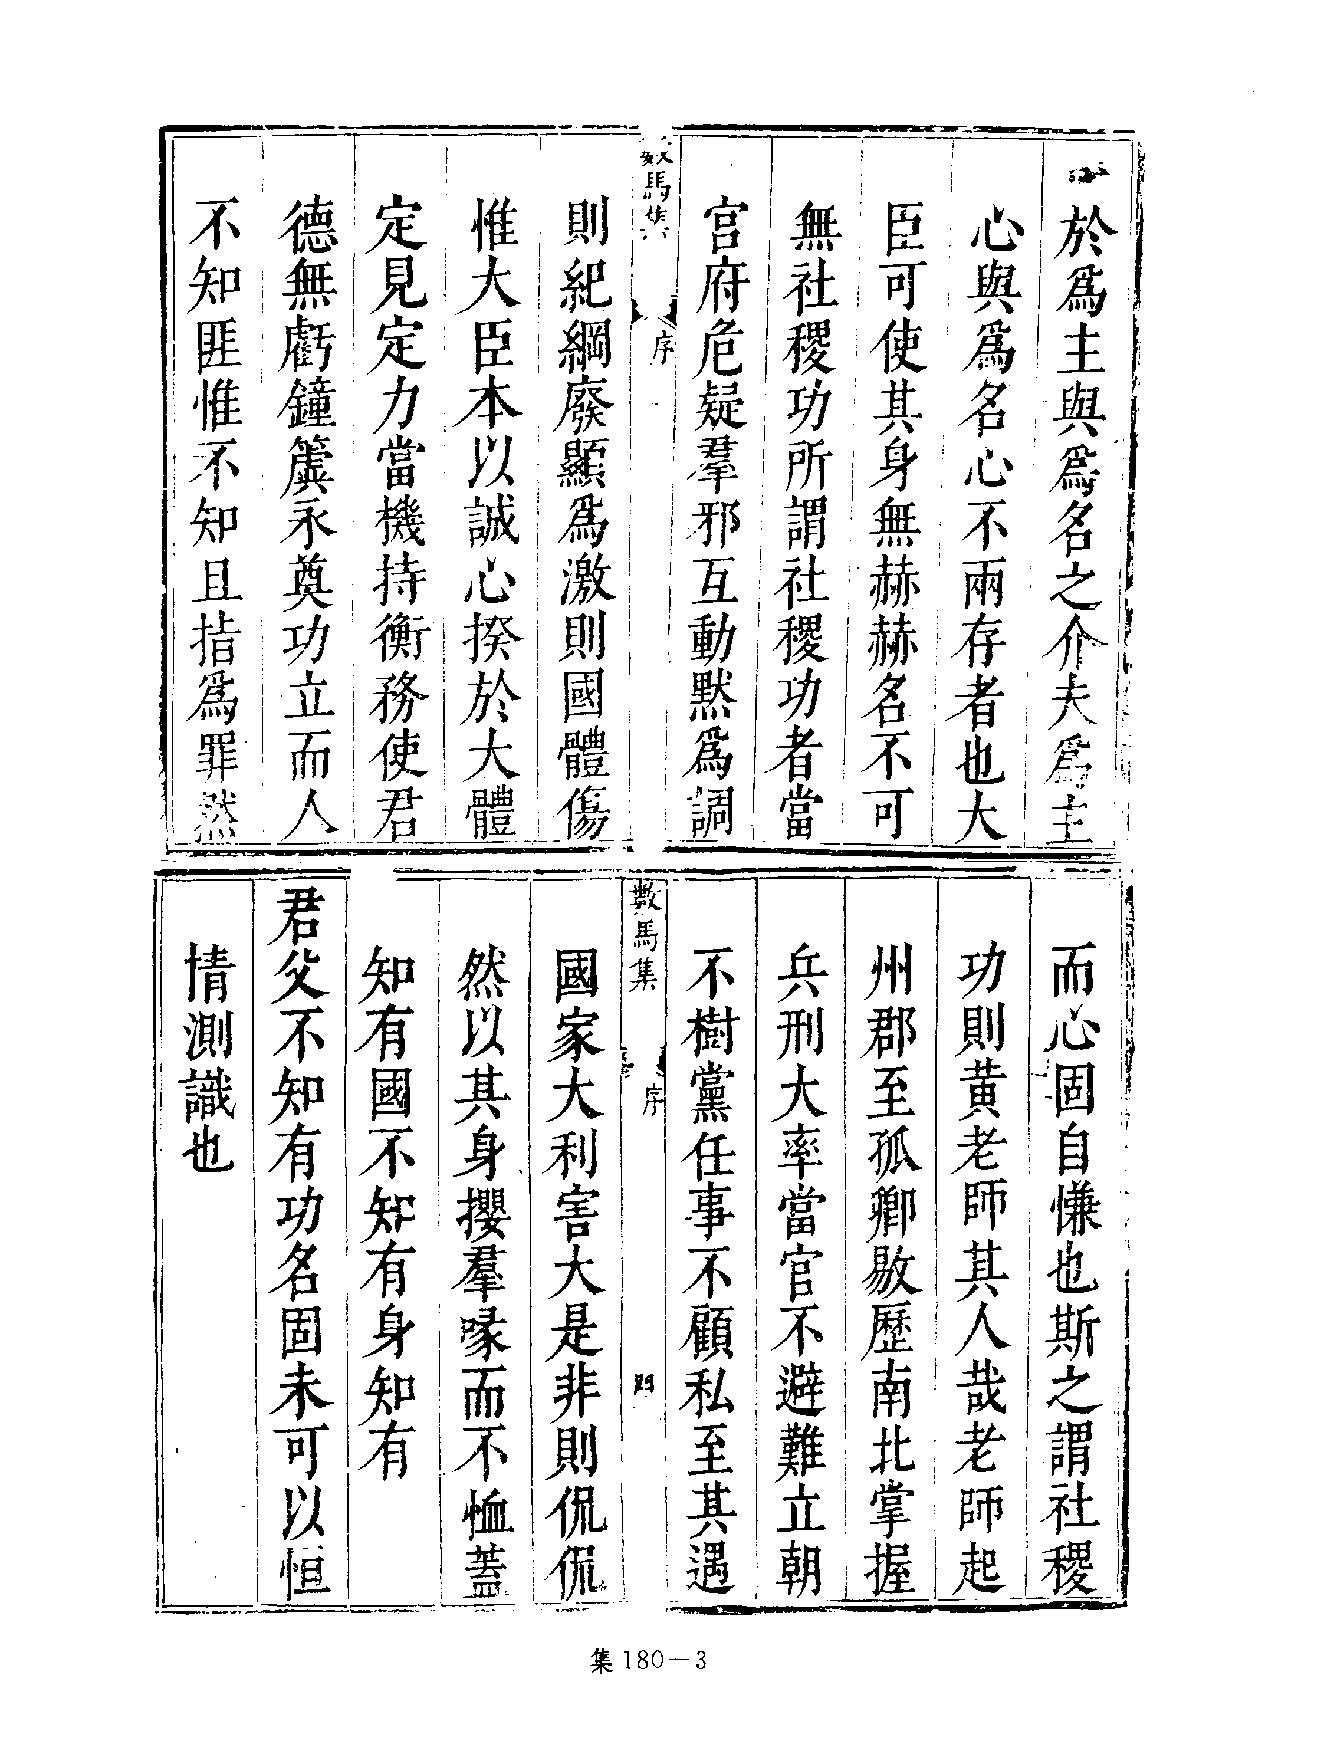 於爲主與爲名之介夫爲主
心與爲名心不兩存者也大
臣可使其身無赫赫名不可
無社稷功所謂社稷功者當
宮府危疑羣邪互動默爲調
數馬集
序
則紀綱廢顯爲激則國體傷
惟大臣本以誠心揆於大體
定見定力當機持衡務使君
德無虧鐘簴永奠功立而人
不知匪惟不知且指爲罪然
而心固自慊也斯之謂社稷
功則黄老師其人哉老師起
州郡至孤卿敭歷南北掌握
兵刑大率當官不避難立朝
不樹黨任事不顧私至其遇
數馬集
序
四
國家大利害大是非則侃侃
然以其身攖羣喙而不恤蓋
知有國不知有身知有
君父不知有功名固未可以恒
情測識也
集180－3